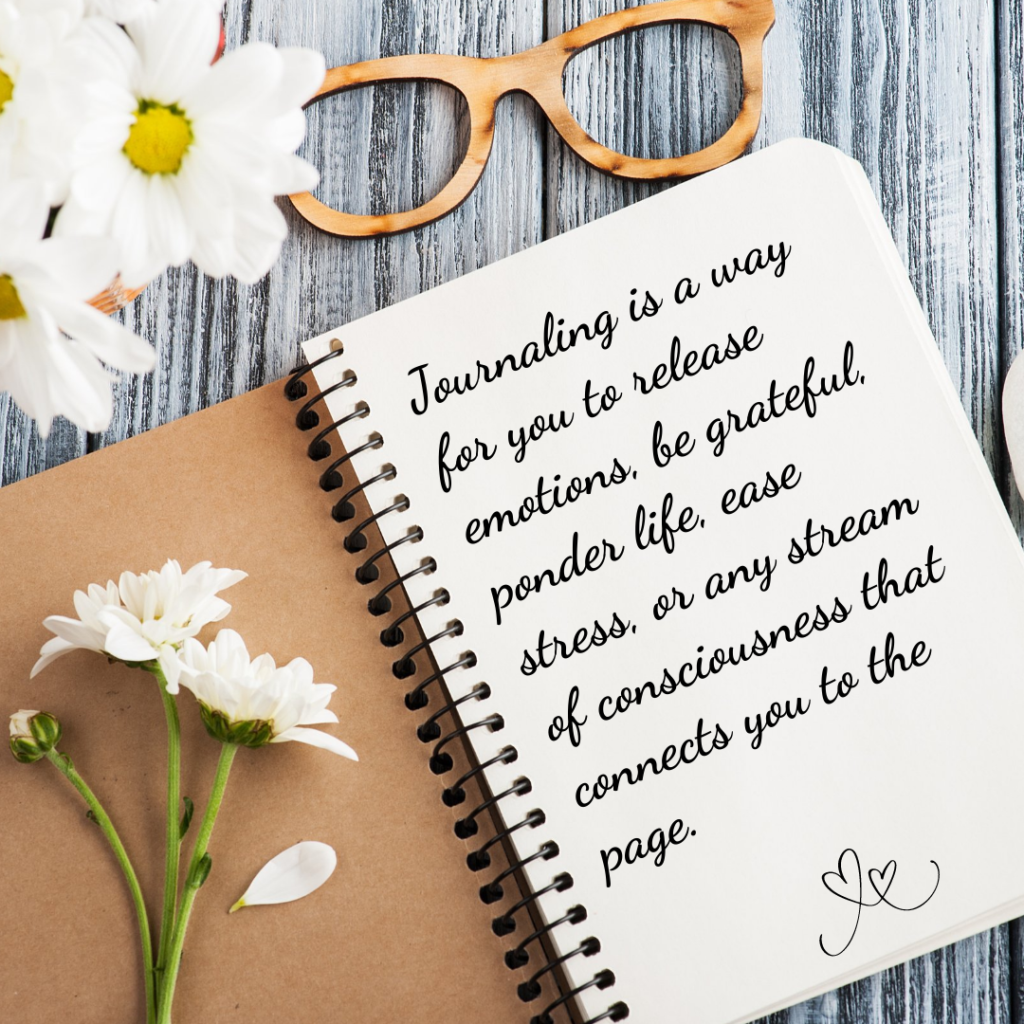 Journaling is a way
for you to release
emotions, be grateful,
ponder life, ease
stress, or any stream
of consciousness that
connects you to the
page.